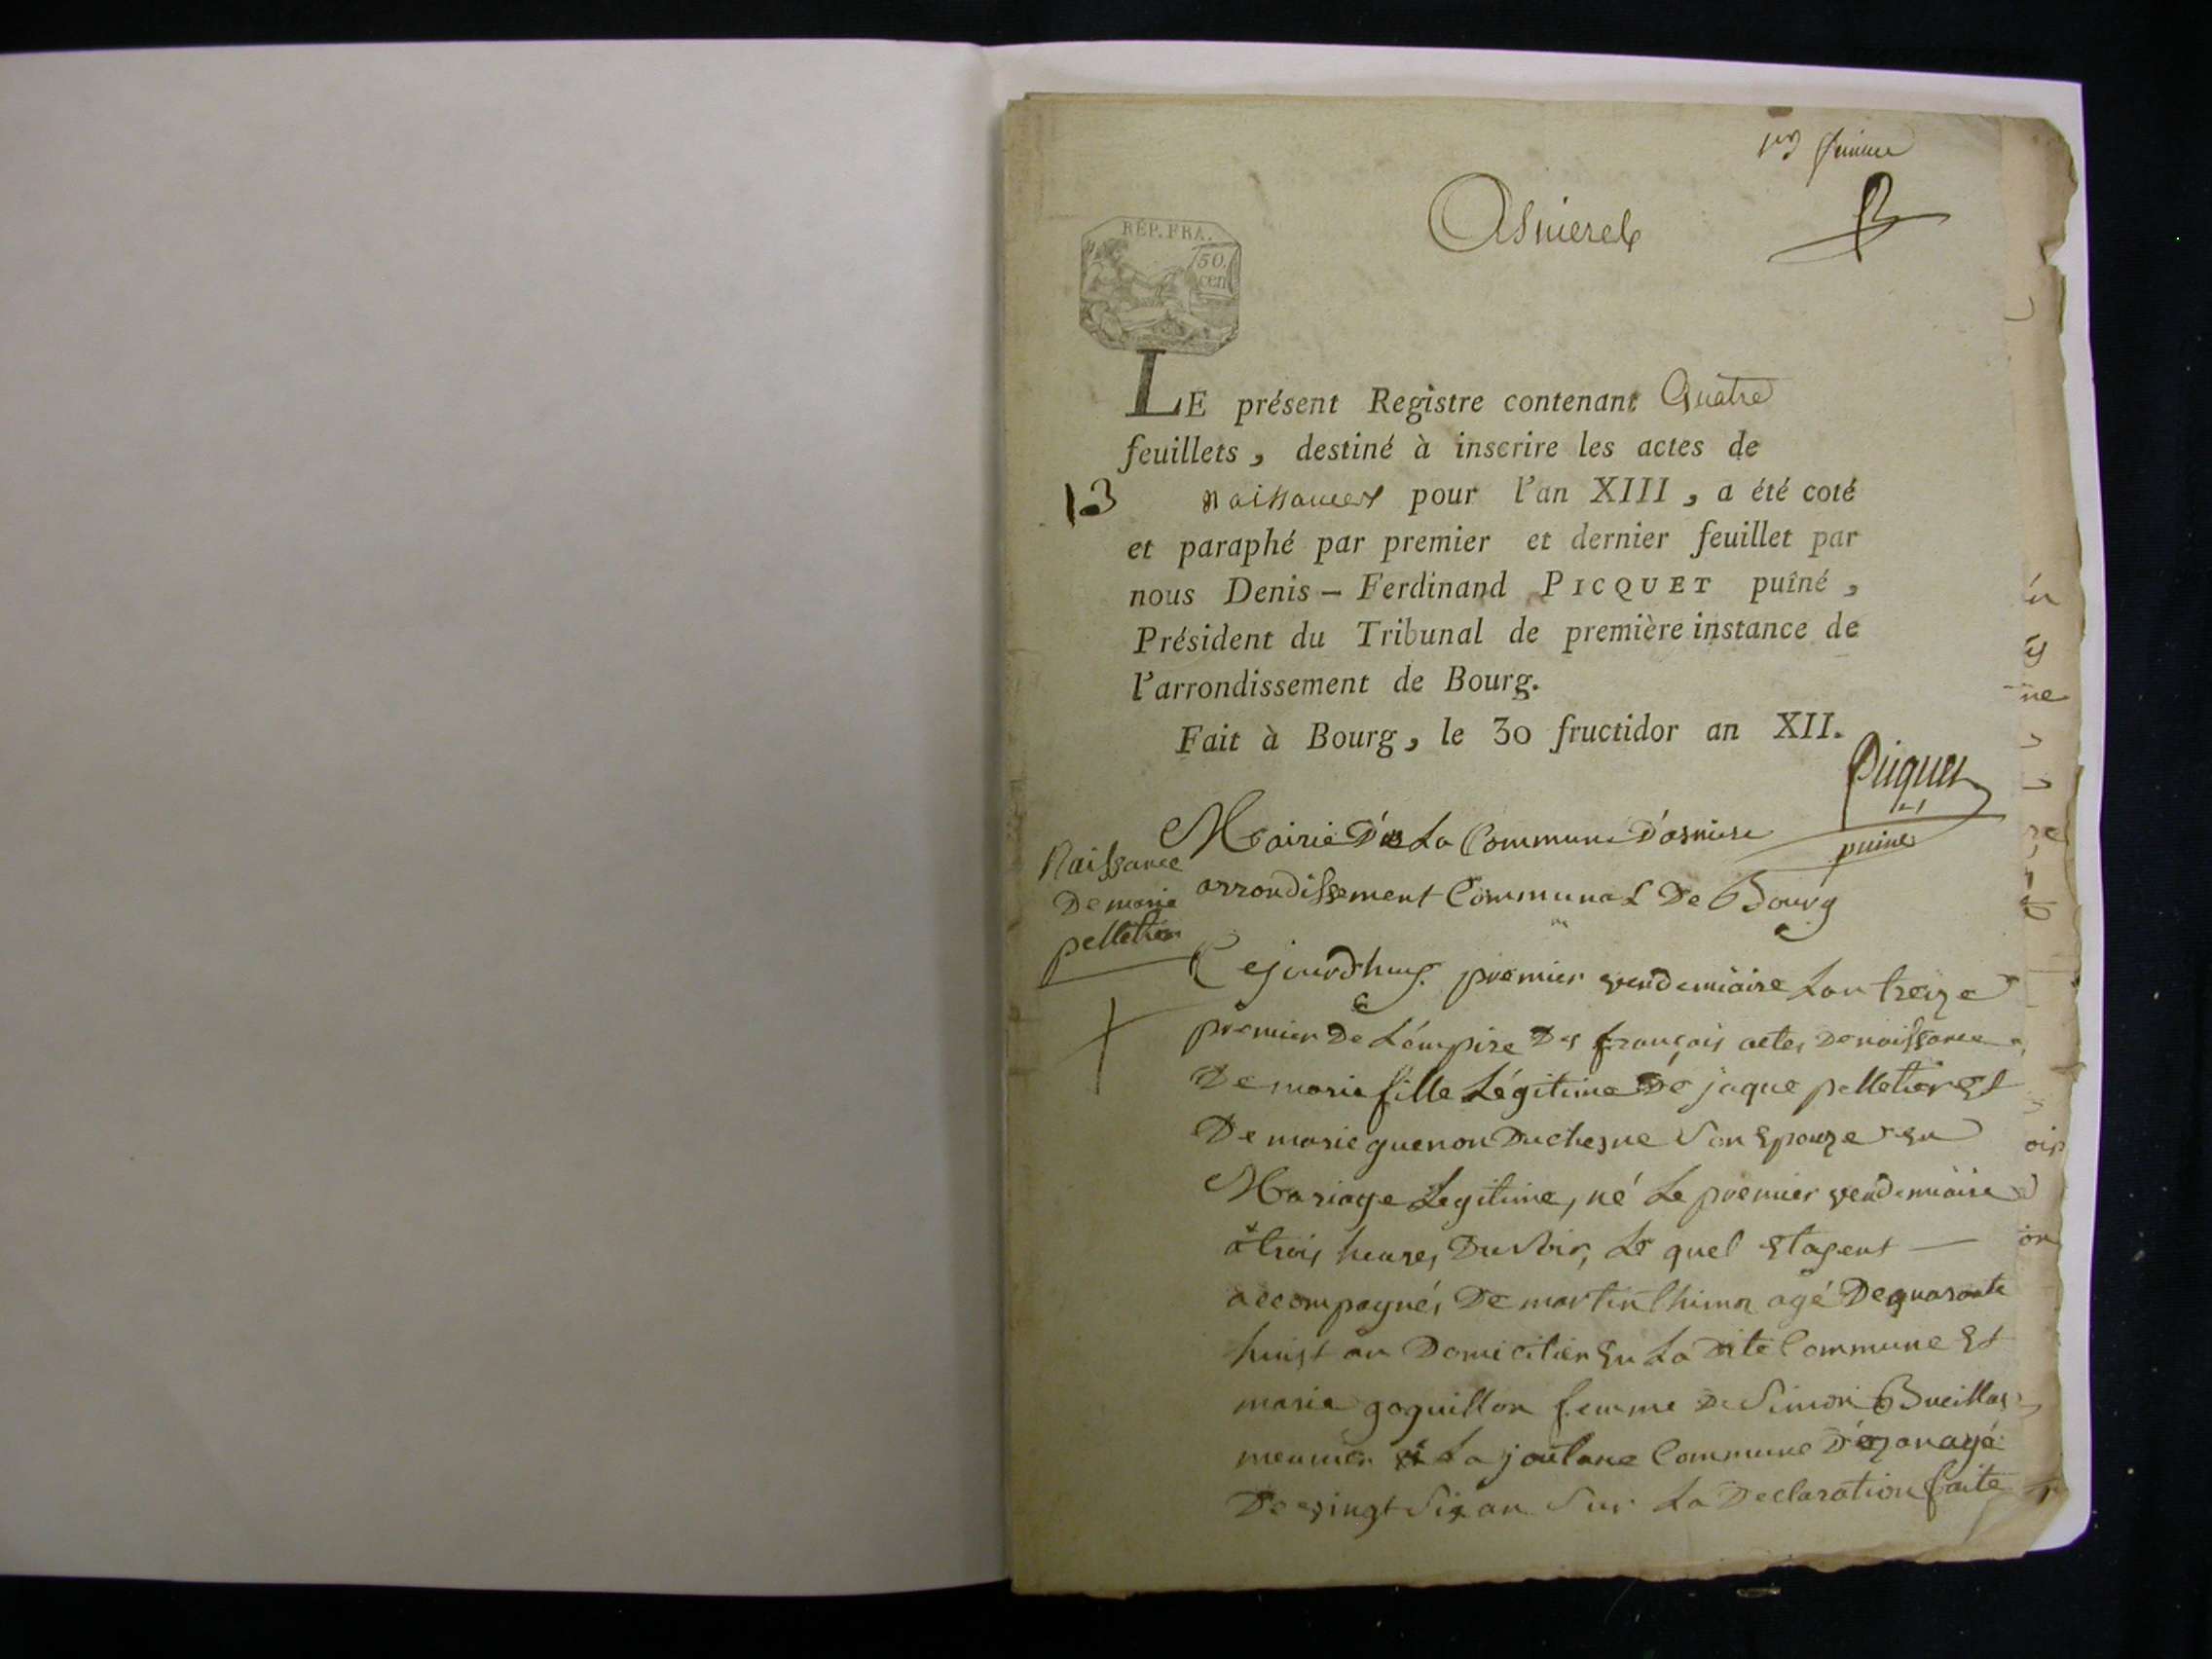 Asnieres
RÉP. FRA.
50
cen
LE présent Registre contenant Quatre
feuillets, destiné à inscrire les actes de
13
naissances pour l'an XIII, a été coté
et paraphé par premier et dernier feuillet par
nous Denis – Ferdinand PICQUET puîné,
Président du Tribunal de première instance de
l'arrondissement de Bourg.
Fait à Bourg, le 30 fructidor an XII.
Picquet
puiné
Naissance
De marie
pelletier
Mairie De La Commune D'asniere
arrondissement Communal De Bourg
Cejourdhuy premier vendemiaire Lan treize
premier De L'émpire Des françois actes De naissance
De marie fille Légitime De jaque pelletier Et
De marie guenon Duchesne Son Epouze En
Mariage Legitime, né Le premier vendemiaire
à trois heures Du Soir, Le quel
accompagnés De martin agé De quarante
huist an Domicilier En La Dite Commune Et
marie goguillon femme De Simon
meunier à La joutane Commune D'ozan agé
De vingt Six an Sur La Declaration faite